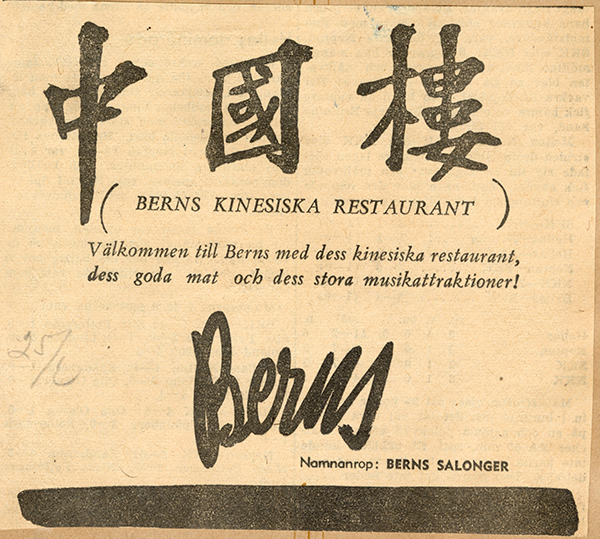 中國樓
( BERNS KINESISKA RESTAURANT )
Välkommen till Berns med dess kinesiska restaurant,
dess goda mat och dess stora musikattraktioner!
25/6
Berns
Namnanrop: BERNS SALONGER